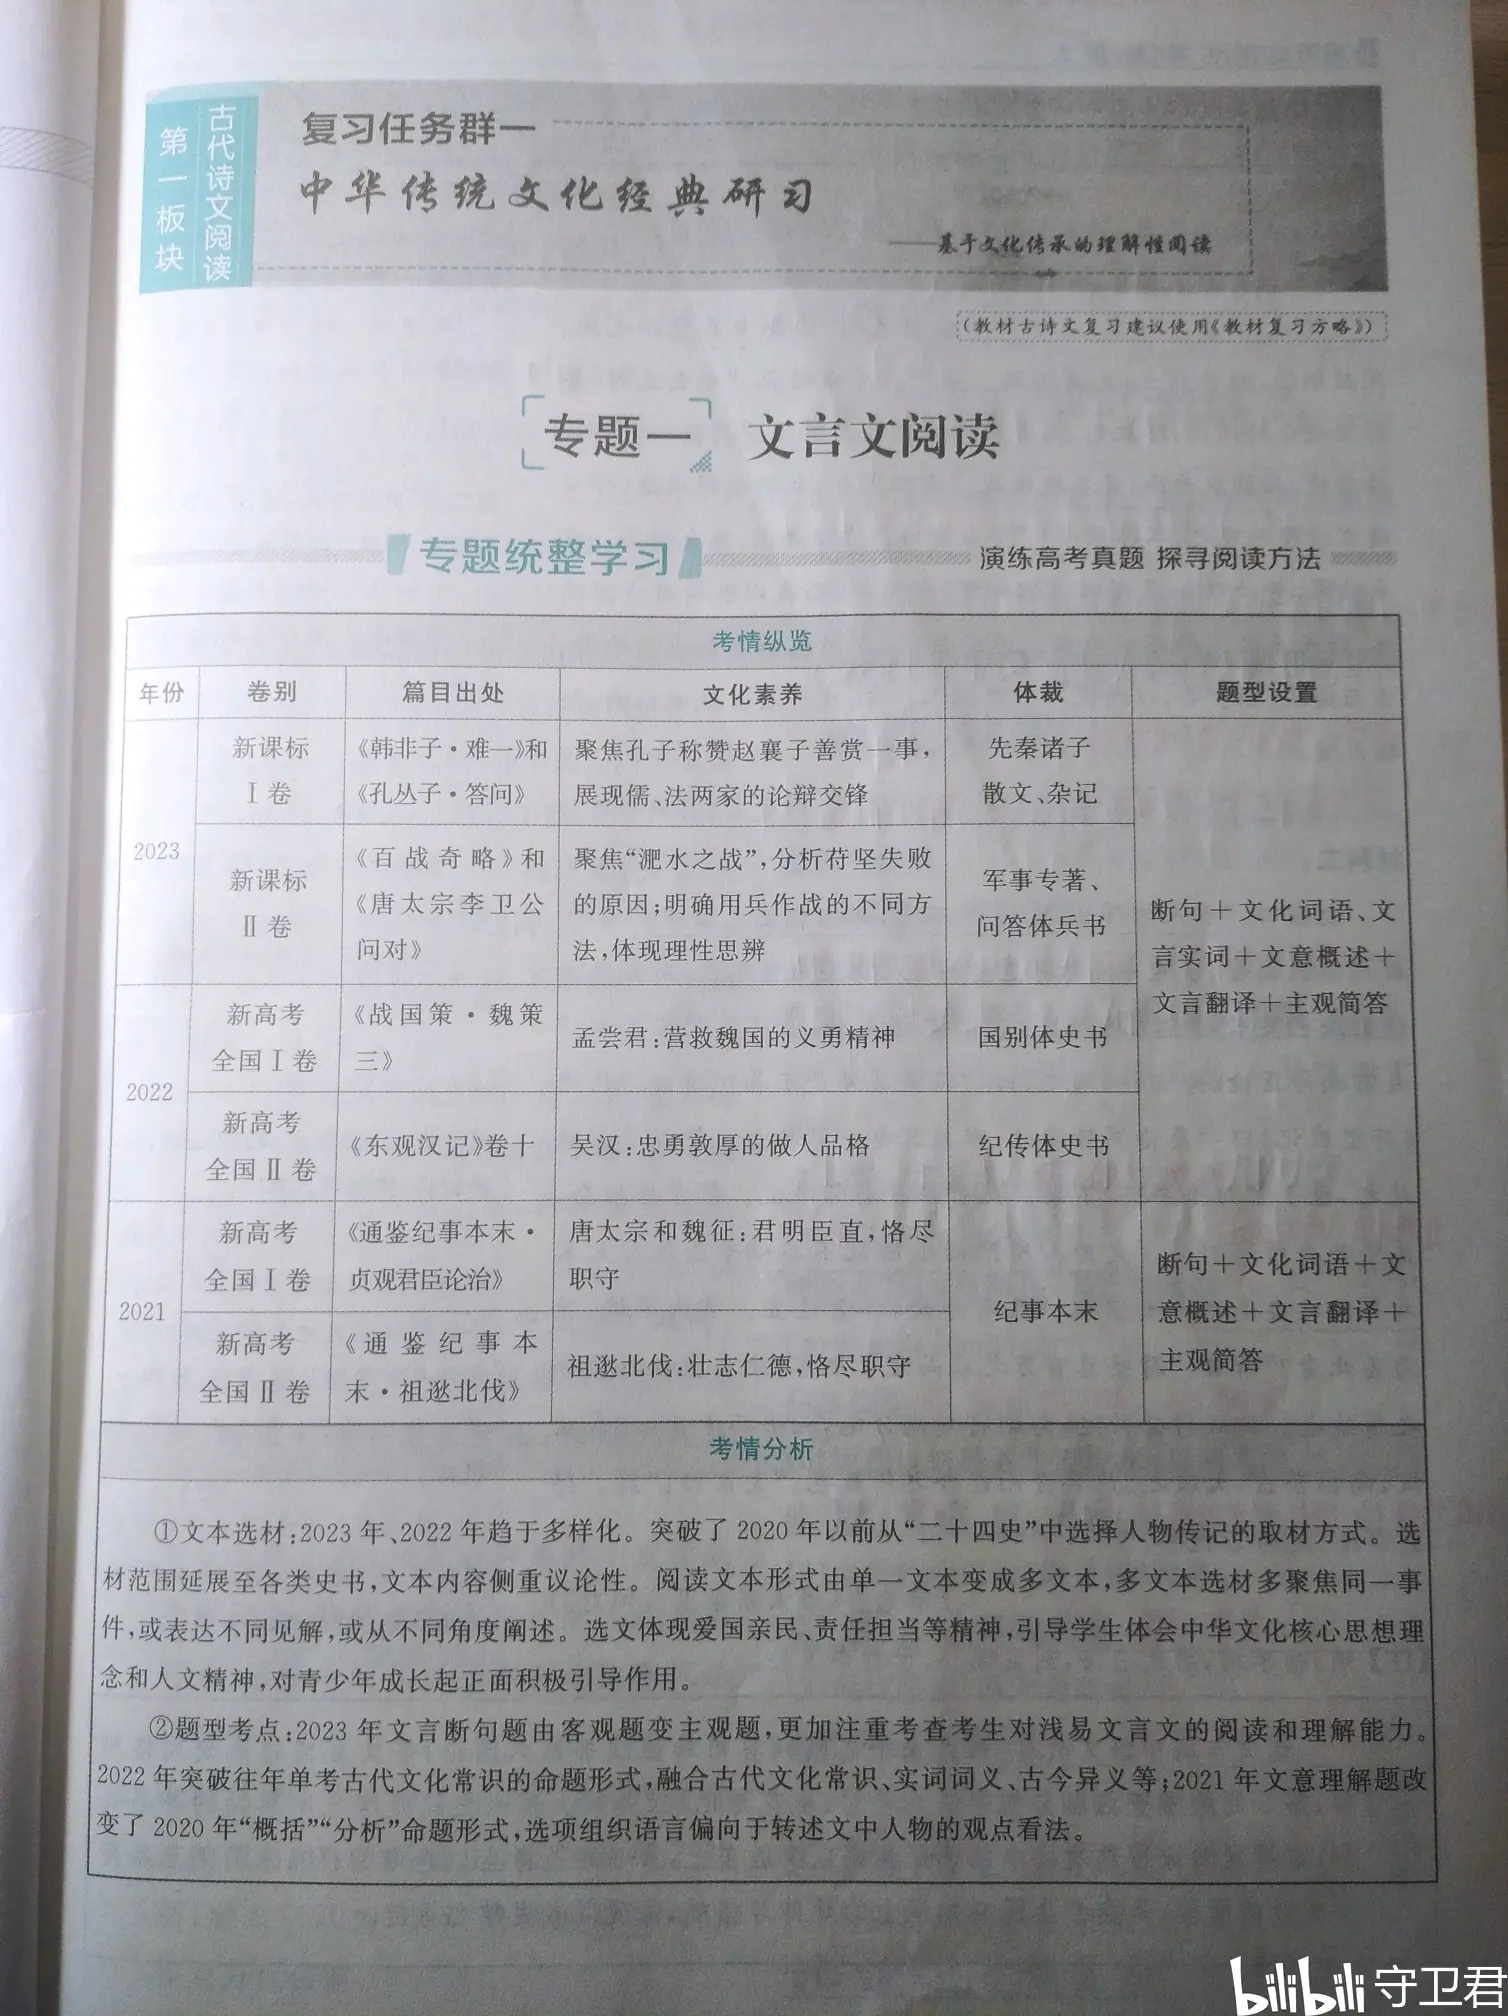 第一板块
古代诗文阅读
复习任务群一
中华传统文化经典研习
——基于文化传承的理解性阅读
(教材古诗文复习建议使用《教材复习方略》)
专题一 文言文阅读
专题统整学习
演练高考真题 探寻阅读方法
考情纵览
年份 卷别 篇目出处 文化素养 体裁 题型设置
2023
新课标
Ⅰ卷
《韩非子·难一》和
《孔丛子·答问》
聚焦孔子称赞赵襄子善赏一事,
展现儒、法两家的论辩交锋
先秦诸子
散文、杂记
新课标
Ⅱ卷
《百战奇略》和
《唐太宗李卫公
问对》
聚焦“淝水之战”,分析苻坚失败
的原因;明确用兵作战的不同方
法,体现理性思辨
军事专著、
问答体兵书
断句+文化词语、文
言实词+文意概述+
文言翻译+主观简答
2022
新高考
全国Ⅰ卷
《战国策·魏策
三》
孟尝君:营救魏国的义勇精神
国别体史书
新高考
全国Ⅱ卷
《东观汉记》卷十
吴汉:忠勇敦厚的做人品格
纪传体史书
2021
新高考
全国Ⅰ卷
《通鉴纪事本末·
贞观君臣论治》
唐太宗和魏征:君明臣直,恪尽
职守
新高考
全国Ⅱ卷
《通鉴纪事本
末·祖逖北伐》
祖逖北伐:壮志仁德,恪尽职守
纪事本末
断句+文化词语+文
意概述+文言翻译+
主观简答
考情分析
①文本选材:2023年、2022年趋于多样化。突破了2020年以前从“二十四史”中选择人物传记的取材方式。选
材范围延展至各类史书,文本内容侧重议论性。阅读文本形式由单一文本变成多文本,多文本选材多聚焦同一事
件,或表达不同见解,或从不同角度阐述。选文体现爱国亲民、责任担当等精神,引导学生体会中华文化核心思想理
念和人文精神,对青少年成长起正面积极引导作用。
②题型考点:2023年文言断句题由客观题变主观题,更加注重考查考生对浅易文言文的阅读和理解能力。
2022年突破往年单考古代文化常识的命题形式,融合古代文化常识、实词词义、古今异义等;2021年文意理解题改
变了2020年“概括”“分析”命题形式,选项组织语言偏向于转述文中人物的观点看法。
bilibili 守卫君